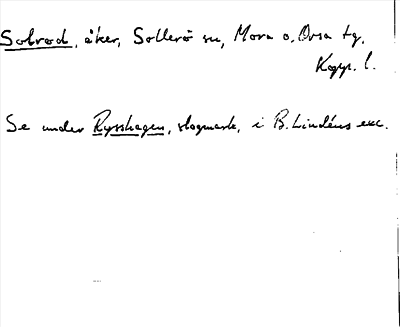 Solrod, åker, Sollerö sn, Mora o. Orsa tg.
Kopp. l.
Se under Rysshagen, slogmark, i B. Lindéns exc.